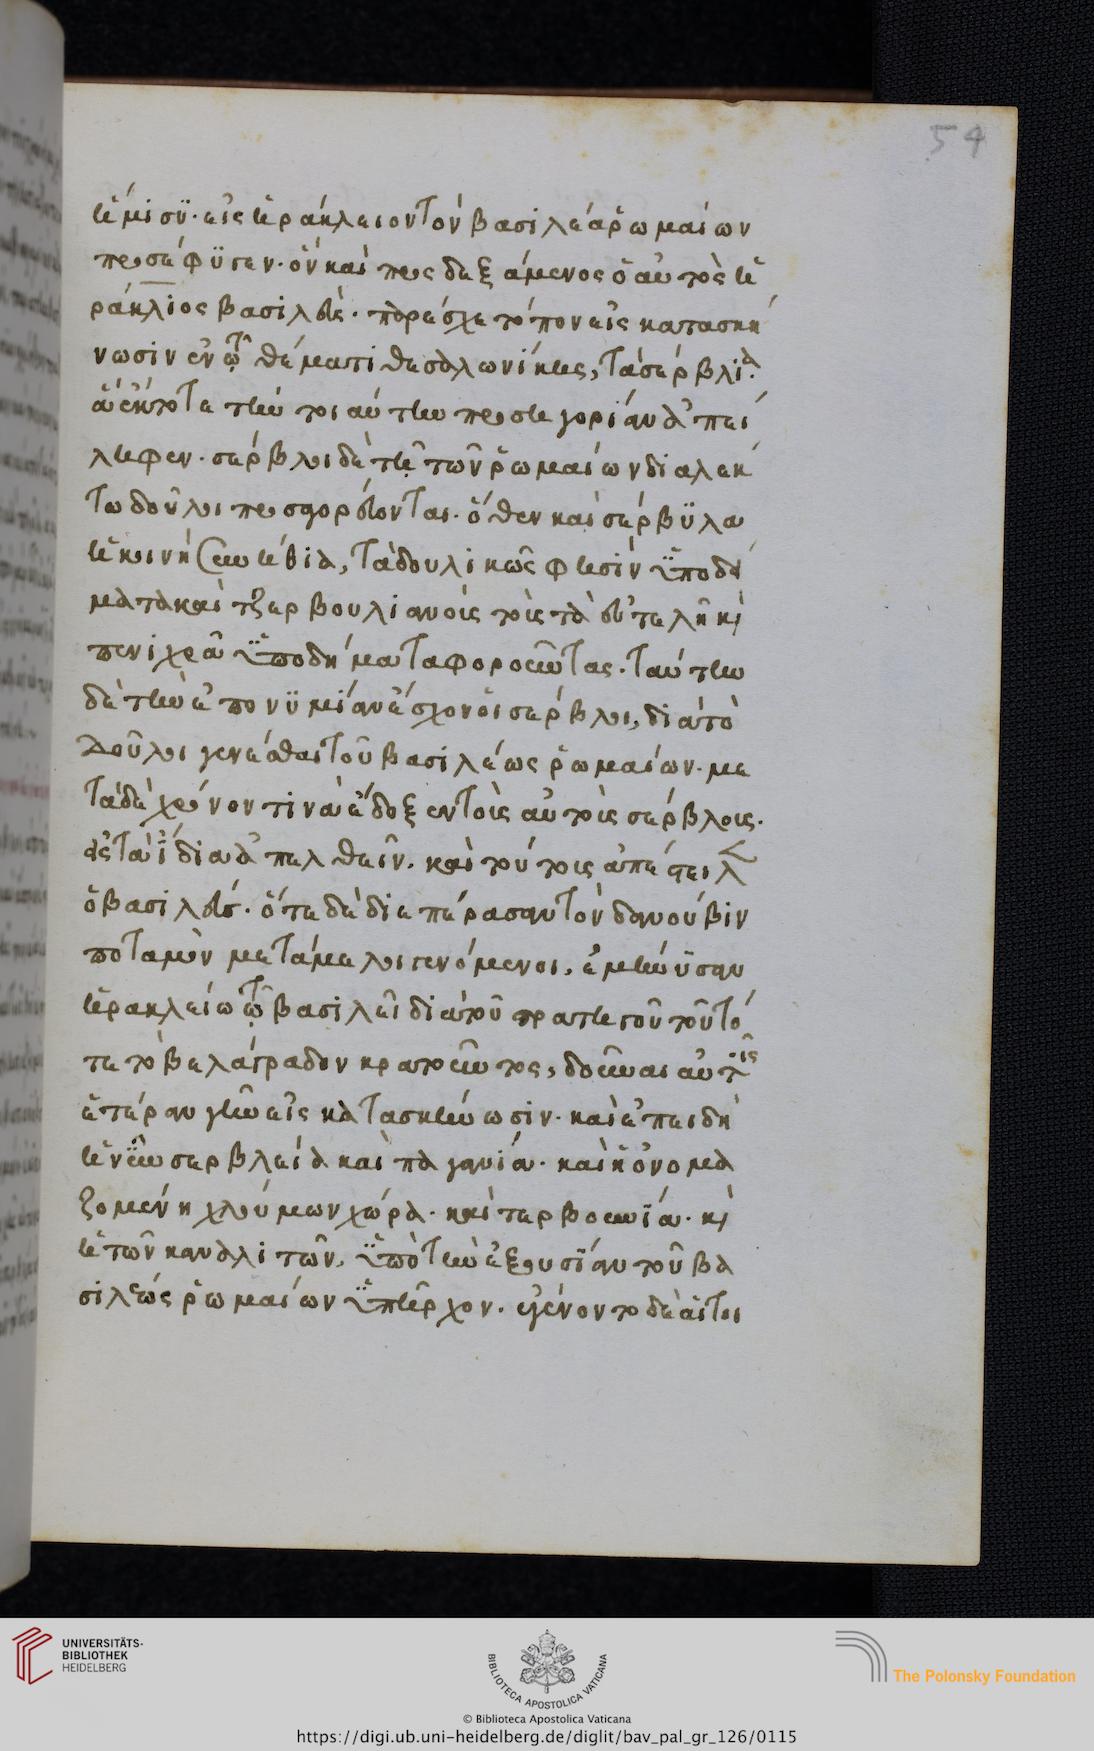 54
ἥμισϋ· εἰς ἡράκλειον τὸν βασιλέα ῥωμαίων
προσέφϋγεν· ὃν καὶ προσδεξάμενος ὁ αὐτὸς ἡ
ράκλιος βασιλεὺς· παρέσχε τόπον εἰς κατασκή
νωσιν ἐν τῷ θέματι θεσαλωνίκης, τὰ σέρβλια·
ἃ ἔκτοτε τὴν τοιαύτην προσηγορίαν ἀπεί
ληφεν· σέρβλοι δὲ τῇ τῶν ῥωμαίων διαλέκ
τω δοῦλοι προσαγορεύονται· ὅθεν καὶ σέρβϋλα
ἡ κοινὴ συνήθια, τὰ δουλικῶς φησὶν ϋποδή
ματα καὶ τζερβουλιανοὺς τοὺς τὰ εὐτελῆ κὶ
πενιχρὰ ϋποδήματα φοροῦντας· ταύτην
δὲ τὴν ἐπονϋμίαν ἔσχον οἱ σέρβλοι, διὰ τὸ
δοῦλοι γενέσθαι τοῦ βασιλέως ῥωμαίων· με
τὰ δὲ χρόνον τινὰ ἔδοξεν τοὺς αὐτοὺς σέρβλους·
εἰς τὰ ἴδια ἀπελθεῖν· καὶ τούτους ἀπέστειλ
ὁ βασιλεύς· ὅτε δὲ διεπέρασαν τὸν δανούβιν
ποταμὸν μετάμελοι γενόμενοι, ἐμήνϋσαν
ἡρακλείω τῷ βασιλεῖ διὰ τοῦ στρατηγοῦ τοῦ τό
τε τὸ βελάγραδον κρατοῦντος, δοῦναι αὐτοῖς
ἑτέραν γῆν εἰς κατασκήνωσιν· καὶ ἐπειδὴ
ἡ νῦν σερβλεία καὶ παγανία· καὶ ἡ ὀνομα
ζομένη χλούμων χώρα· καὶ τερβουνία· κὶ
ἡ τῶν καναλιτῶν, ϋπὸ τὴν ἐξουσίαν τοῦ βα
σιλέως ῥωμαίων ϋπῆρχον· ἐγένοντο δὲ αἱ τοι
UNIVERSITÄTS-
BIBLIOTHEK
HEIDELBERG
BIBLIOTECA APOSTOLICA VATICANA
© Biblioteca Apostolica Vaticana
The Polonsky Foundation
https://digi.ub.uni-heidelberg.de/diglit/bav_pal_gr_126/0115